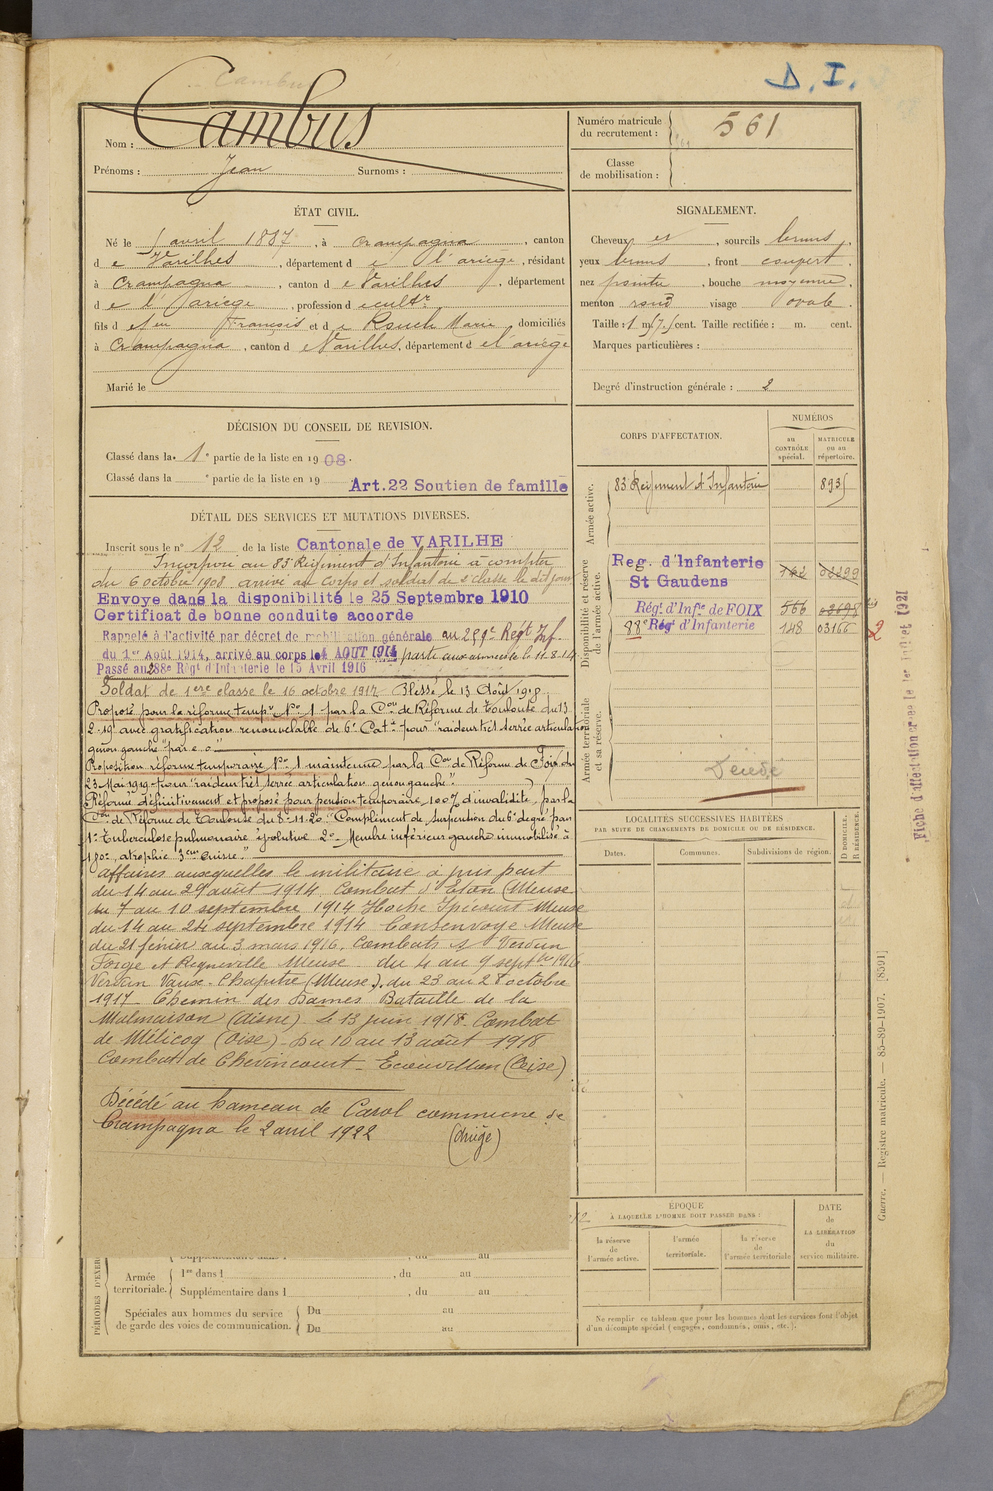 D. I.
Cambus
Nom : Cambus
Prénoms : Jean Surnoms :
Numéro matricule du recrutement : 561
Classe de mobilisation :
ÉTAT CIVIL.
Né le avril 1887, à Crampagna, canton
de Varilhes, département de l'ariège, résidant
à Crampagna, canton de Varilhes, département
de l'ariège, profession d cultr
fils de feu François et de Rouch Marie, domiciliés
à Crampagna, canton de Varilhes, département de l'ariège
Marié le
SIGNALEMENT.
Cheveux et, sourcils bruns,
yeux bruns, front couvert,
nez pointu, bouche moyenne,
menton rond visage ovale.
Taille : 1 m. cent. Taille rectifiée : m. cent.
Marques particulières :
Degré d'instruction générale : 2
DÉCISION DU CONSEIL DE REVISION.
Classé dans la 1e partie de la liste en 1908.
Classé dans la e partie de la liste en 19
Art.22 Soutien de famille
DÉTAIL DES SERVICES ET MUTATIONS DIVERSES.
Inscrit sous le n° 12 de la liste Cantonale de VARILHE
Incorporé au 83e Régiment d'Infanterie à compter
du 6 octobre 1908. arrivé au corps et soldat de 2e classe le dit jour
Envoye dans la disponibilité le 25 Septembre 1910
Certificat de bonne conduite accorde
Rappelé à l'activité par décret de mobilisation générale au 259e Régt Inf.
du 1er Août 1914, arrivé au corps le 4 AOUT 1914 parti aux armées le 11-8-14
Passé au 288e Régt d'Infanterie le 15 Avril 1916
Soldat de 1ere classe le 16 octobre 1917. Blessé le 13 Août 1918.
Proposé pour la réforme tempre No 1 par la Con de Réforme de Toulouse du 13
2-19 avec gratification renouvelable de 6e Cat. pour "raideur très serrée articulation
genou gauche" par e. o.
Proposition réforme temporaire No 1 maintenue par la Con de Réforme de Foix du
23 Mai 1919 pour "raideur très serrée articulation genou gauche".
Réformé définitivement et proposé pour pension temporaire 100% d'invalidité, par la
Con de Réforme de Toulouse du 8-11-20. "Complément de Surpension du 6e degré pour
1o Tuberculose pulmonaire évolutive 2o Membre inférieur gauche immobilisé à
180o, atrophie 3cm cuisse."
affaires auxquelles le militaire a pris part
du 14 au 29 août 1914 Combat d'Etain (Meuse
du 7 au 10 septembre 1914 Hoche Ipécourt Meuse
du 14 au 24 septembre 1914 Consenvoye Meuse
du 21 février au 3 mars 1916. Combats de Verdun
Forge et Regneville Meuse du 4 au 9 septbre 1916
Verdun Vaux-Chapitre (Meuse), du 23 au 28 octobre
1917 Chemin des Dames Bataille de la
Malmaison (Aisne) le 13 juin 1918 Combat
de Mélicoq (Oise) Du 10 au 13 août 1918
Combats de Chevincourt - Ecouvillon (Oise)
Décédé au hameau de Carol commune de
Crampagna le 2 avril 1922 (Ariège)
CORPS D'AFFECTATION.
NUMÉROS
au CONTRÔLE spécial.
MATRICULE ou au répertoire.
Armée active.
83e Régiment d'Infanterie 8935
Disponibilité et réserve de l'armée active.
Reg. d'Infanterie
St Gaudens
Régt. d'Infie de FOIX 566
88e Régt d'Infanterie 148 03166
2
Armée territoriale et sa réserve.
Décédé
LOCALITÉS SUCCESSIVES HABITÉES
PAR SUITE DE CHANGEMENTS DE DOMICILE OU DE RÉSIDENCE.
Dates. Communes. Subdivisions de région. D DOMICILE. R RÉSIDENCE.
ÉPOQUE
À LAQUELLE L'HOMME DOIT PASSER DANS :
la réserve de l'armée active.
l'armée territoriale.
la réserve de l'armée territoriale
DATE de LA LIBÉRATION du service militaire.
Ne remplir ce tableau que pour les hommes dont les services font l'objet
d'un décompte spécial (engagés, condamnés, omis, etc.).
PÉRIODES D'EXER
Supplémentaire dans l , du au
Armée territoriale.
1re dans l , du au
Supplémentaire dans l , du au
Spéciales aux hommes du service
de garde des voies de communication.
Du au
Du au
Fiche d'affectation créée le 1er Juillet 1921
Guerre. — Registre matricule. — 85-89-1907. [8591]